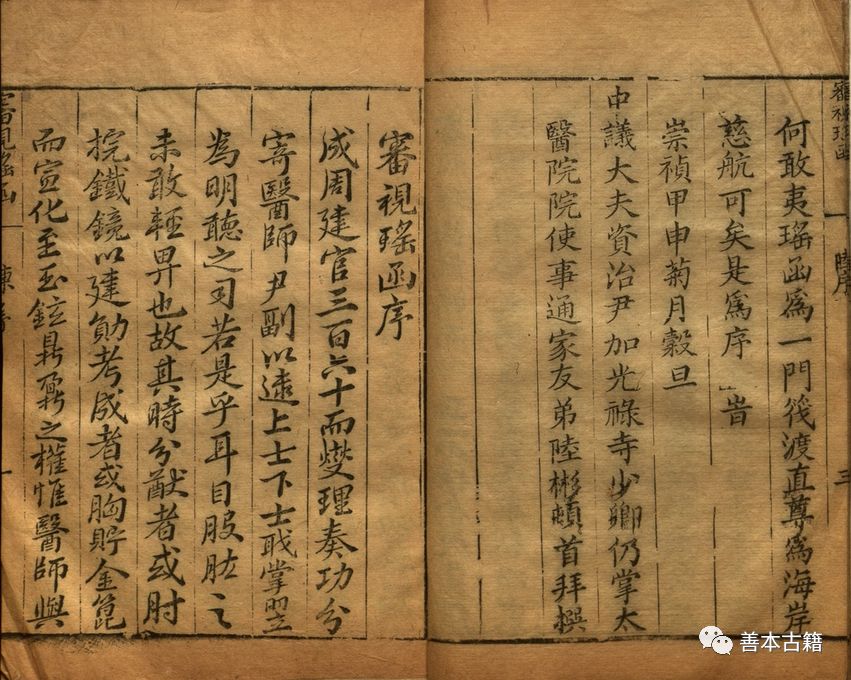 審視瑤函
陸序
三
何敢夷瑤函爲一門筏渡直尊爲海岸
慈航可矣是爲序
旹
崇禎甲申菊月穀旦
中議大夫資治尹加光祿寺少卿仍掌太
醫院院使事通家友弟陸彬頓首拜撰
審視瑤函序
成周建官三百六十而燮理奏功分
寄醫師尹副以逮上士下士戢掌翌
爲明聽之司若是乎耳目股肱之
未敢輕畀也故其時分猷者或肘
捖鐵鏡以建勛考成者或胸貯金篦
而宣化至玉鉉鼎鼐之權惟醫師與
審視瑤函
陳序
一
善本古籍